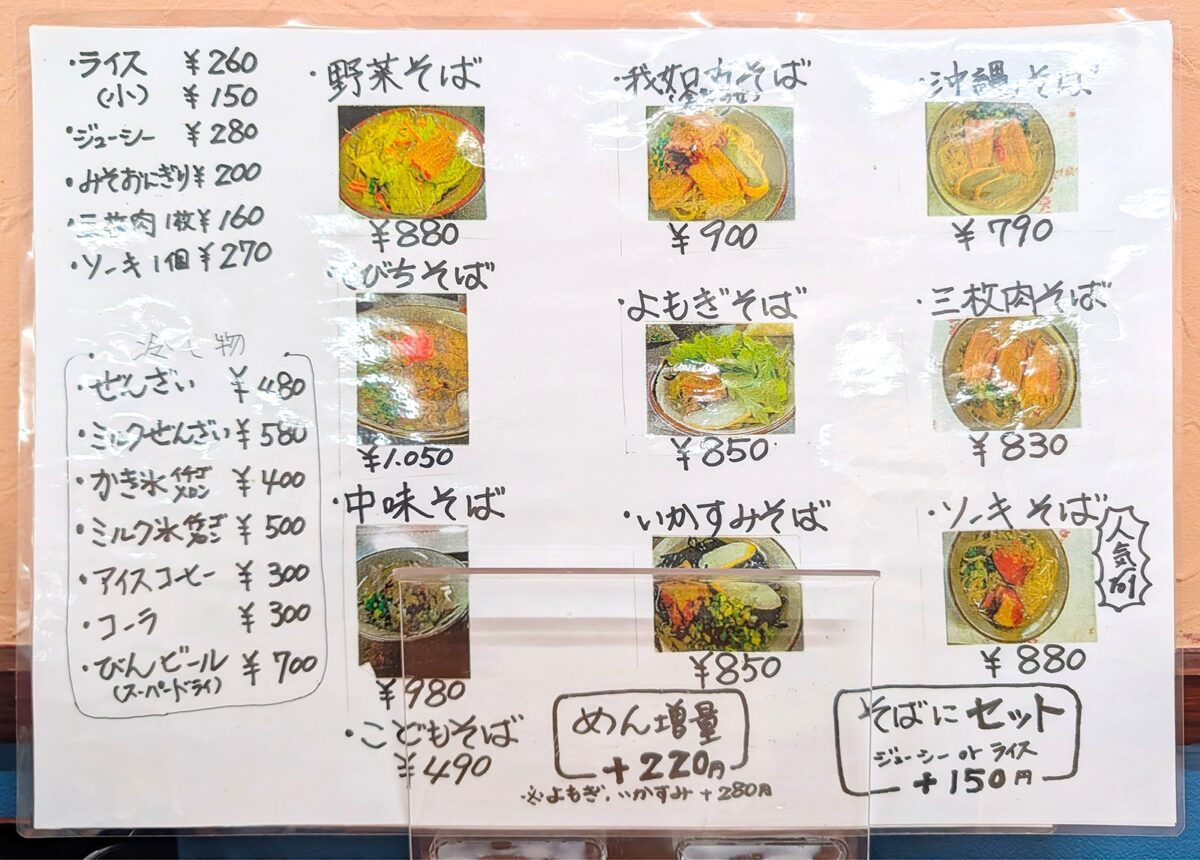 ・ライス ¥260
(小) ¥150
・ジューシー ¥280
・みそおにぎり ¥200
・三枚肉 1枚 ¥160
・ソーキ 1個 ¥270
冷た物
・ぜんざい ¥480
・ミルクぜんざい ¥580
・かき氷 イチゴ メロン ¥400
・ミルク氷 イチゴ メロン ¥500
・アイスコーヒー ¥300
・コーラ ¥300
・びんビール ¥700
(スーパードライ)
・野菜そば
¥880
てびちそば
¥1.050
・中味そば
¥980
・こどもそば
¥490
・我如古そば
¥900
・よもぎそば
¥850
・いかすみそば
¥850
めん増量
+220円
※よもぎ、いかすみ+280円
・沖縄そば
¥790
・三枚肉そば
¥830
・ソーキそば
人気
¥880
そばにセット
ジューシー or ライス
+150円